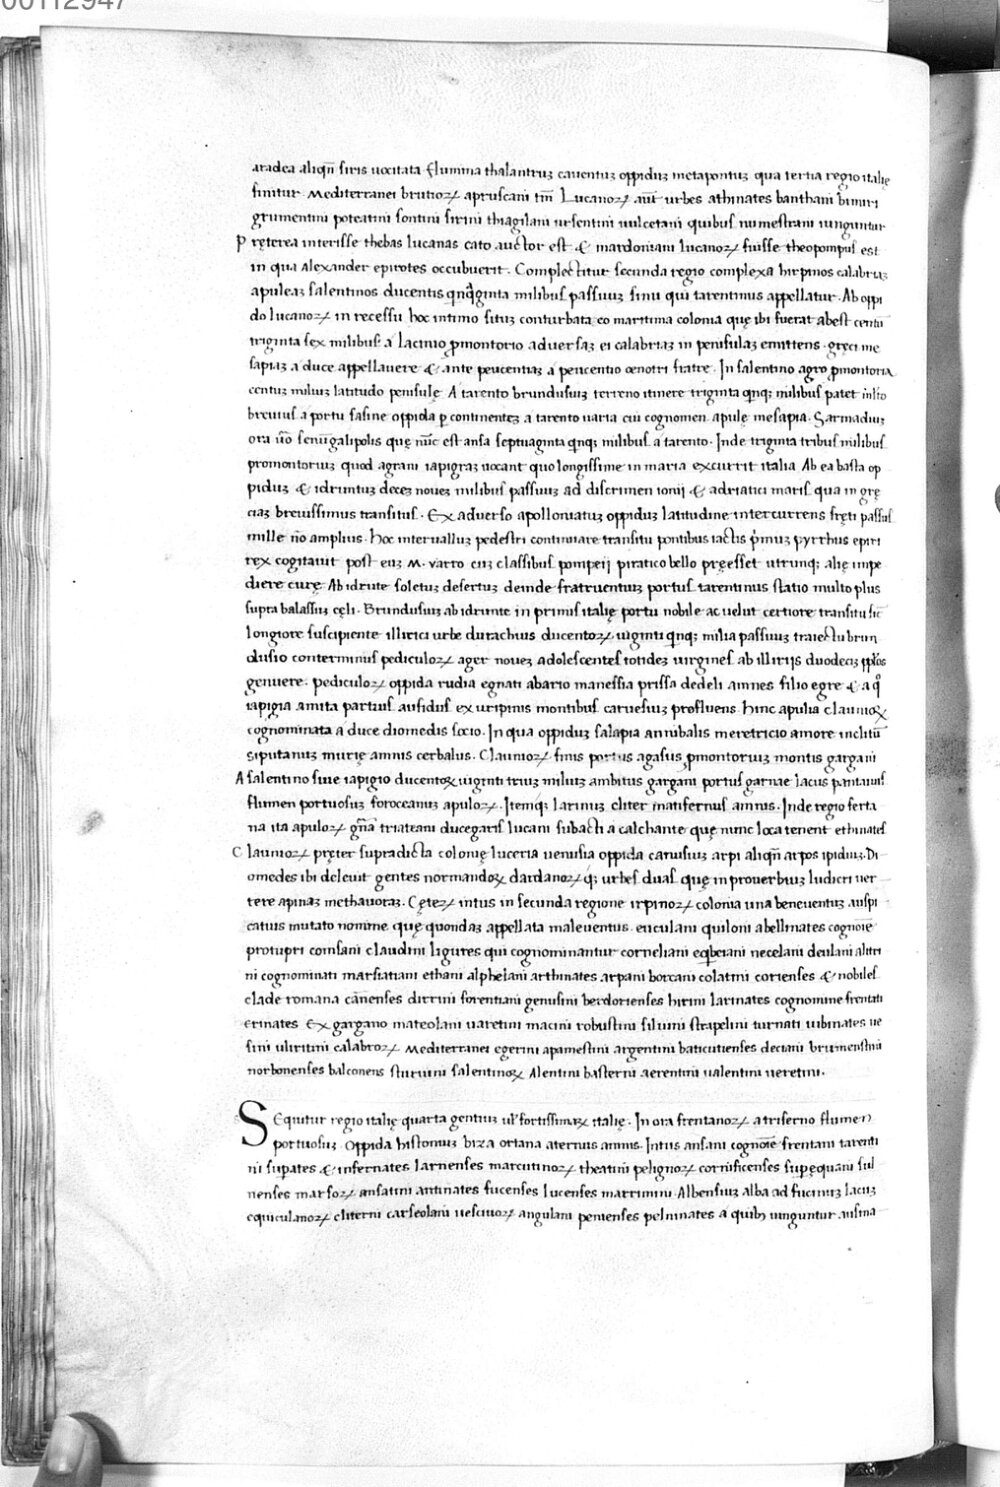 00112947
aradea aliqñ siris uocitata flumina thalantruꝫ cauentuꝫ oppiduꝫ metapontuꝫ qua tertia regio italię
finitur. Mediterranei brutioꝝ aprustani tm̃ Lucanoꝝ aut̃ urbes athinates banthani bimiri
grumentini poteatini sontini sirini thiagilani ursentini uulcetani quibus numestrani iunguntur
Pręterea interisse thebas lucanas cato auctor est & mardoniam lucanoꝝ fuisse theopompus est
in qua Alexander epirotes occubuerit. Complectitur secunda regio complexa hirpinos calabriaꝫ
apuleaꝫ salentinos ducentis qnq̃ginta milibus passuuꝫ sinu qui tarentinus appellatur. Ab oppi
do lucanoꝝ in recessu hoc intimo situꝫ conturbata eo maritima colonia quę ibi fuerat abest centũ
triginta sex milibus a lacinio ꝓmontorio aduersaꝫ ei calabriaꝫ in penisulaꝫ emittens. gręci me
sapiaꝫ a duce appellauere & ante peucentiaꝫ a peucentio oenotri fratre. In salentino agro ꝓmontoria
centuꝫ miliuꝫ latitudo penisulę A tarento brundusiuꝫ terreno itinere triginta qnqꝫ milibus patet multo
breuius a portu sasine oppida ꝑ continenteꝫ a tarento uaria cui cognomen. apulę mesapia. Sarmadiuꝫ
ora ũo senũgalipolis quę nũc est ansa septuaginta qnqꝫ milibus a tarento. Inde triginta tribus milibus
promontoriuꝫ quod agram iapigiaꝫ uocant quo longissime in maria excurrit italia Ab ea basta op
piduꝫ & idruntuꝫ deceꝫ noueꝫ milibus passuuꝫ ad discrimen ionij & adriatici maris qua in gre
ciaꝫ breuissimus transitus. Ex aduerso apolloniatuꝫ oppiduꝫ latitudine intercurrens freti passus
mille nõ amplius. hoc interualluꝫ pedestri continuare transitu pontibus iactis p̃muꝫ pyrrhus epiri
rex cogitauit post euꝫ M. varro cuꝫ classibus pompeij piratico bello pręesset utrunqꝫ alię impe
diere curę. Ab idrute soletuꝫ desertuꝫ deinde fratruentiuꝫ portus tarentinus statio multo plus
supra balassiuꝫ cęli. Brundusiuꝫ ab idrunte in primis italię portu nobile ac uelut certiore transitu sic
longiore suscipiente illirici urbe durachius ducentoꝝ uiginti qnqꝫ milia passuuꝫ traiectu brun
dusio conterminus pediculoꝝ ager noueꝫ adolescentes totideꝫ uirgines ab illirijs duodeciꝫ ppl̃os
genuere. pediculoꝝ oppida rudia egnati abario manessia prissa dedeli amnes filio egre & a qo
iapigia amita partius aufidus ex uripinis montibus caruesiuꝫ profluens. hinc apulia clauniorꝝ
cognominata a duce diomedis socio. In qua oppiduꝫ salapia annibalis meretricio amore inclitũ
siputanuꝫ murię amnis cerbalus. Claunioꝝ finis portus agasus ꝓmontoriuꝫ montis gargani
A salentino siue iapigio ducentoꝝ uiginti triuꝫ miliuꝫ ambitus gargani portus garnae lacus pantanus
flumen portuosuꝫ foroceanuꝫ apuloꝝ. Itemqꝫ larinuꝫ cliter matifernus amnis. Inde regio ferta
na ita apuloꝝ gñã triateani ducegaris lucani subacti a calchante quę nunc loca tenent ethinates
Claunioꝝ pręter supradicta colonię luceria uenusia oppida canusiuꝫ arpi aliqñ arpos ipiduiꝫ. Di
omedes ibi deleuit gentes normandoꝝ dardanoꝝ qꝫ urbes duas quę in prouerbiuꝫ ludicri uer
tere apinaꝫ methauotaꝫ. Cęteꝝ intus in secunda regione irpinoꝝ colonia una beneuentuꝫ auspi
catius mutato nomine quę quondaꝫ appellata maleuentus. euculani quiloni abellinates cognoĩe
protupri comsani claudini ligures qui cognominantur corneliani eqbeiani necelani deulani alitri
ni cognominati marsiatiani ethani alphelani arthinates arpani borcani colatini corienses & nobiles
clade romana cãnenses dirrini forentiani genusini berdorienses hirini larinates cognomine frentati
erinates Ex gargano mateolani uaretini macini robustini siluini strapelini turnati uibinates ue
sini uliritini calabroꝝ Mediterranei egerini apamestini argentini baticutienses deciani brumenstini
norbonenses balconens sturuini salentinoꝝ Alentini basterni aerentini ualentini ueretini.
Sequitur regio italię quarta gentiuꝫ ul̃ fortissimaꝝ italię. In ora frentanoꝝ a triferno flumen
portuosuꝫ. Oppida histoniuꝫ biza ortana aternus amnis. Intus ansani cognoĩe frentani tarenti
ni sup̱ates & infernates larnenses marcutinoꝝ theatini pelignoꝝ cornificenses supęquani sul
nenses marsoꝝ ansatini antinates fucenses lucenses marrimini. Albensiuꝫ alba ad fucinuꝫ lacuꝫ
equiculanoꝝ cliterni carseolani uesciuoꝝ angulani penienses pelninates a quibꝫ iunguntur. ausina